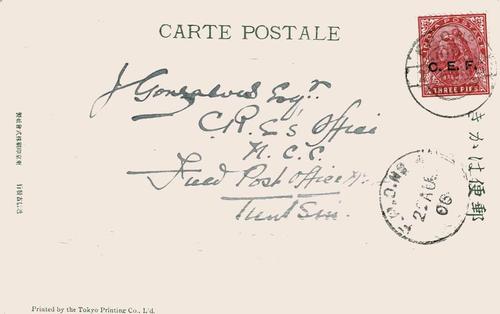 CARTE POSTALE
POSTAGE
C. E. F.
THREE PIES
J Gonsalves Esqr.
C.R.E's Office
N.C.C.
Field Post Office
Tientsin.
22 AU
06
きかは便郵
Printed by the Tokyo Printing Co., L'd.